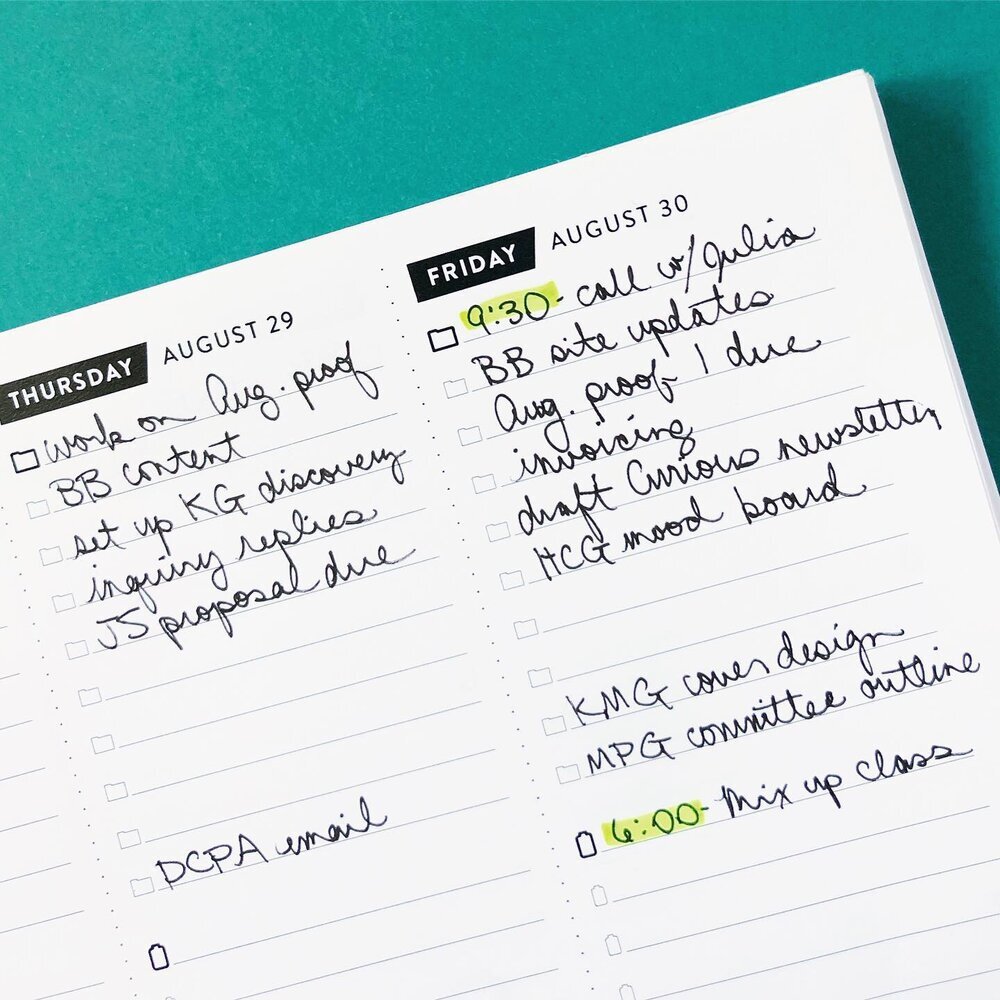 THURSDAY AUGUST 29
work on Aug. proof
BB content
set up KG discovery
inquiry replies
JS proposal due
DCPA email
FRIDAY AUGUST 30
9:30- call w/ Julia
BB site updates
Aug. proof- 1 due
invoicing
draft Curious newsletter
HCG mood board
KMG cover design
MPG committee outline
6:00- Mix up class